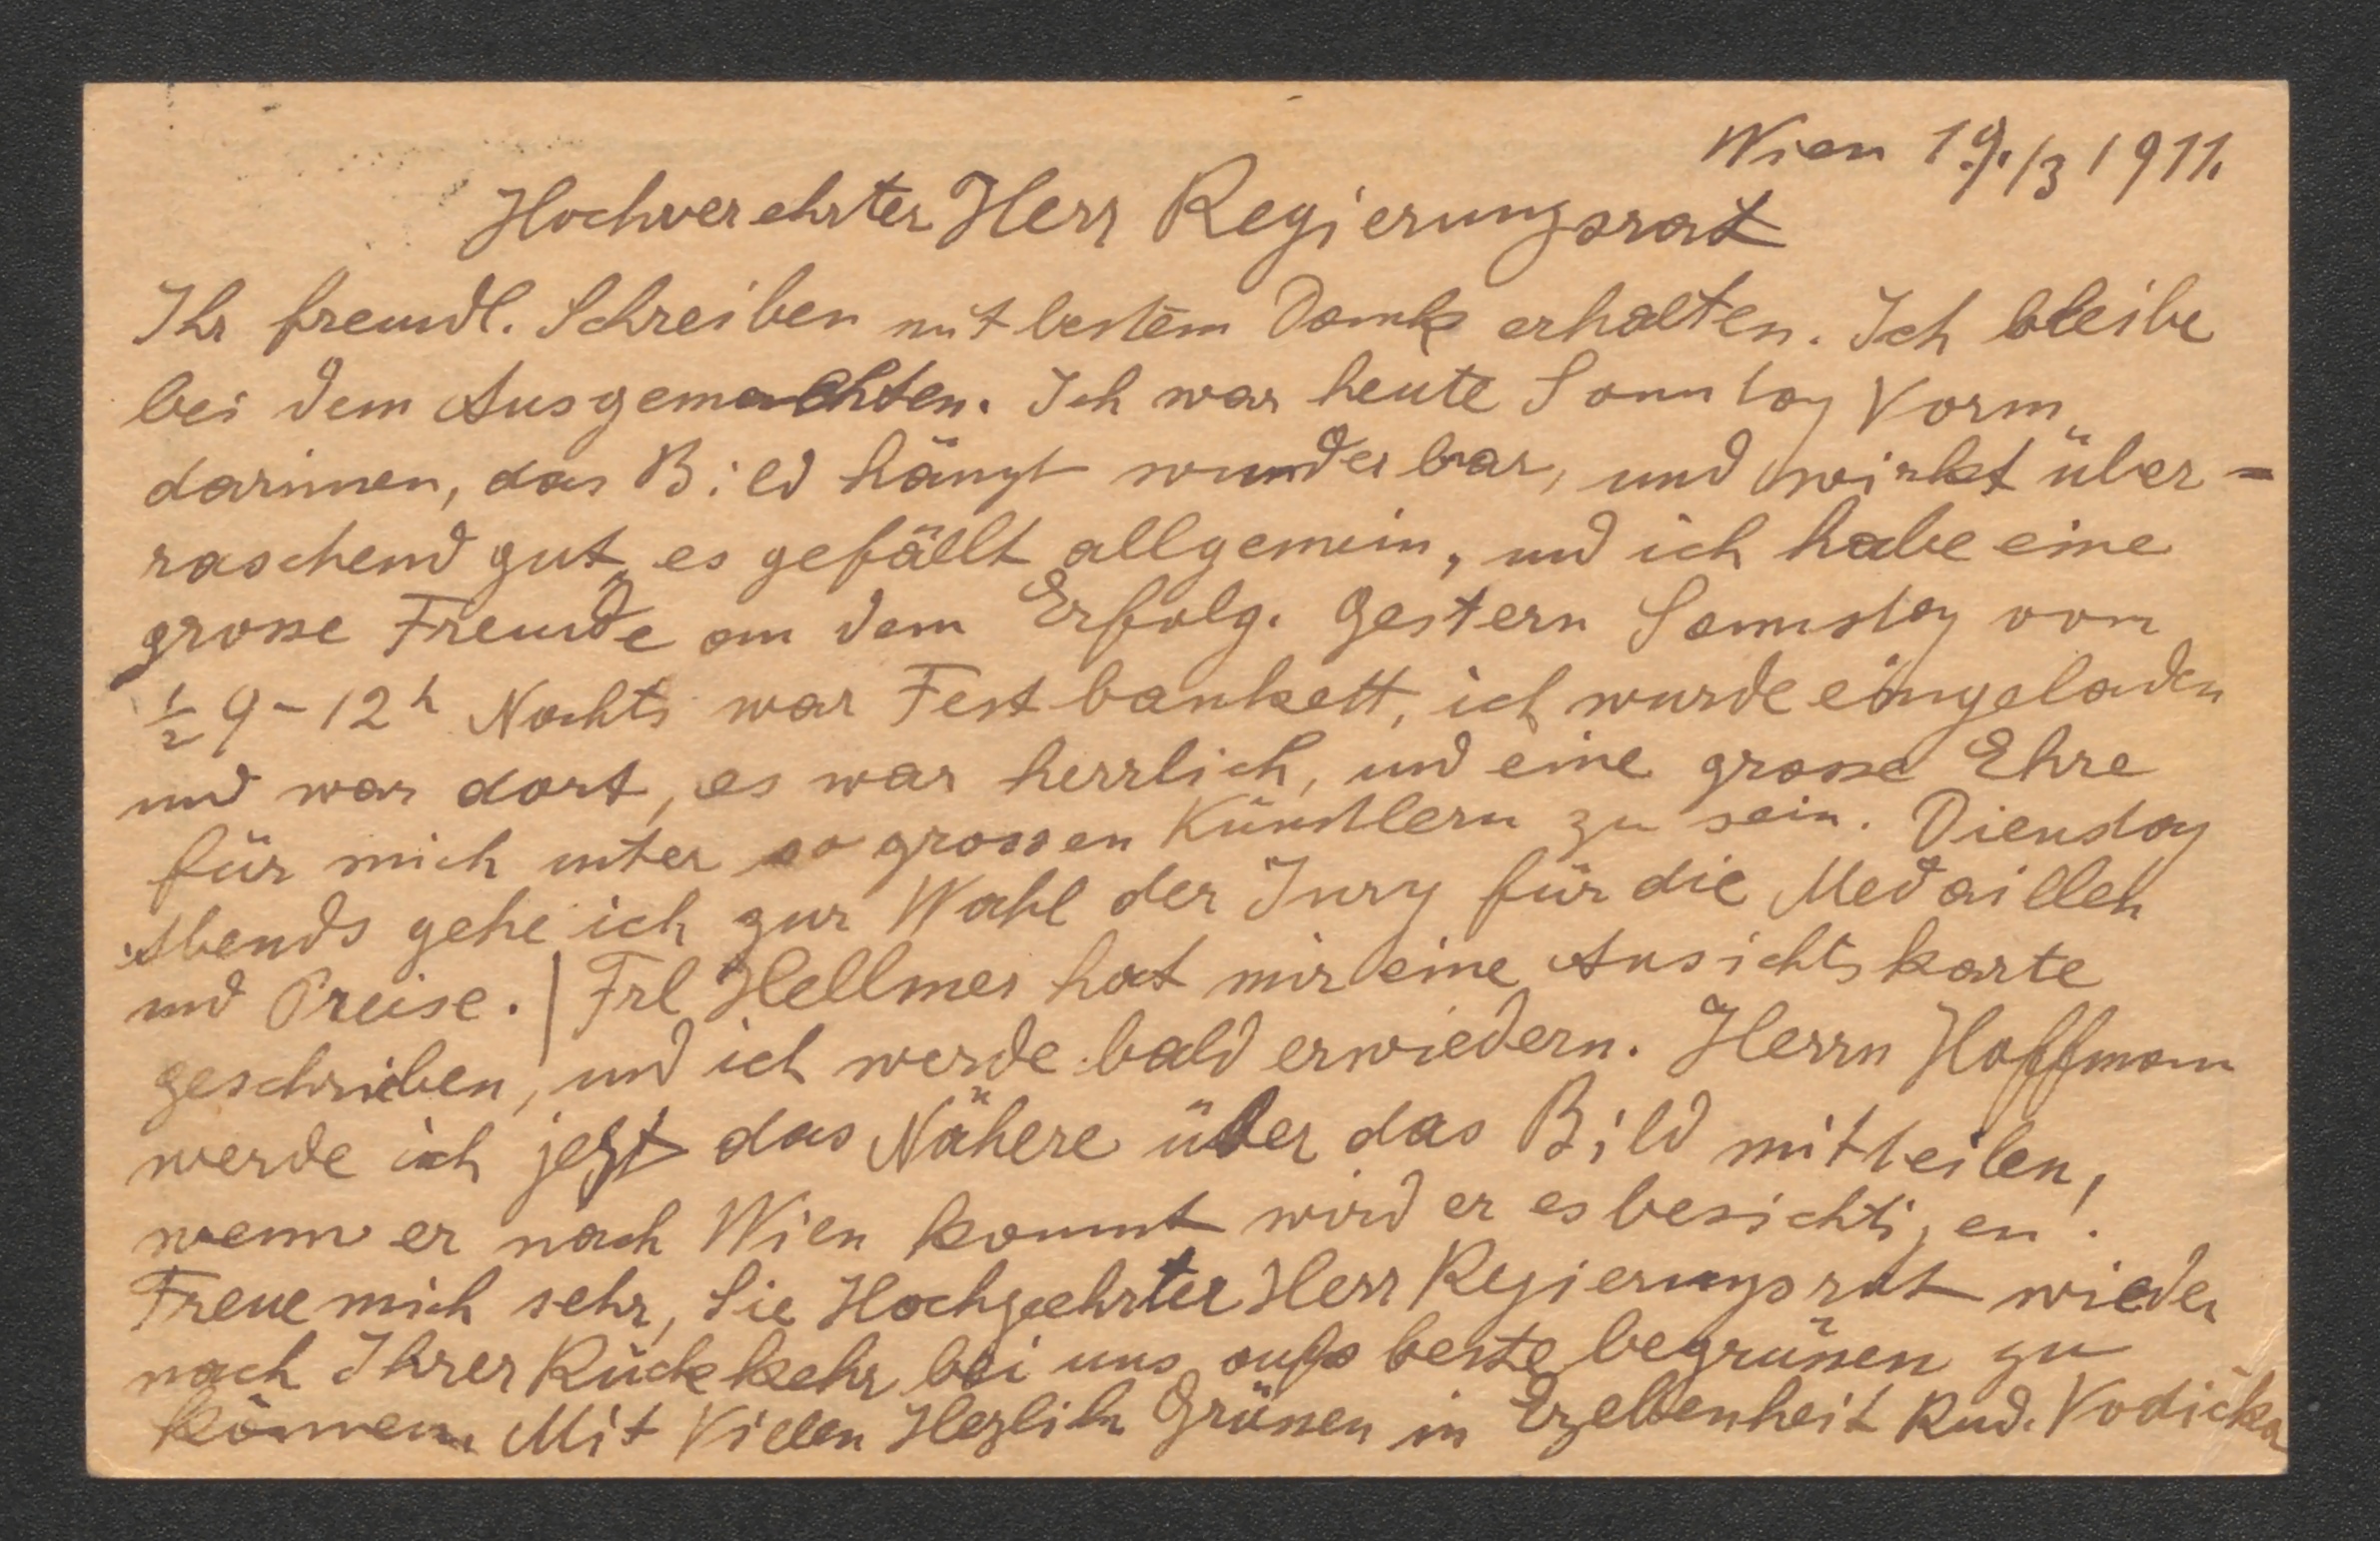 Wien 19./3 1911.
Hochverehrter Herr Regierungsrat
Ihr freundl. Schreiben mit bestem Dank erhalten. Ich bleibe
bei dem Ausgemachten. Ich war heute Sonntag Vorm.
darinnen, das Bild hängt wunderbar, und wirkt über=
raschend gut, es gefällt allgemein, und ich habe eine
grosse Freude an dem Erfolg. Gestern Samstag von
½ 9 - 12h Nachts war Festbankett, ich wurde eingeladen
und war dort, es war herrlich, und eine grosse Ehre
für mich unter so grossen Künstlern zu sein. Dienstag
Abends gehe ich zur Wahl der Jury für die Medaillen
und Preise. | Frl Hellmer hat mir eine Ansichtskarte
geschrieben, und ich werde bald erwiedern. Herrn Hoffmann
werde ich jetzt das Nähere über das Bild mitteilen,
wenn er nach Wien kommt wird er es besichtigen!.
Freue mich sehr, Sie Hochgeehrter Herr Regierungsrat wieder
nach Ihrer Rückkehr bei uns aufs beste begrüssen zu
können. Mit Vielen Herzlichn Grüssen in Ergebenheit Rud. Vodička